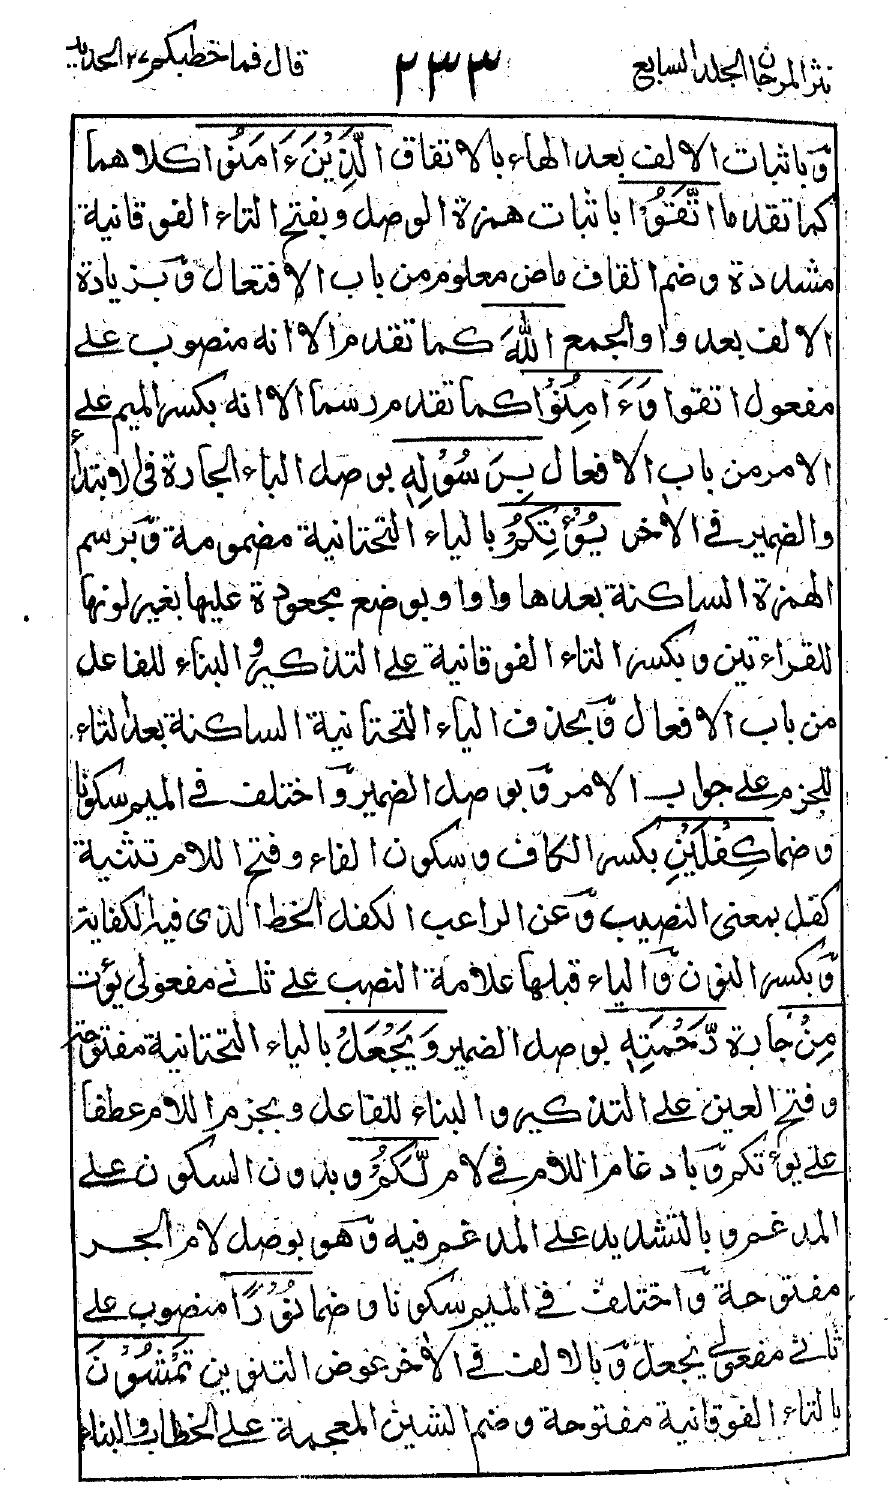 نثر المرجان الجلد السابع ٢٣٣ قال فما خطبكم ٢٧ الحديد
وَباثبات الالف بعد الهاء بالاتفاق الَّذِيْنَ ءَامَنُوْا كلاهما
كما تقدما اتَّقَوُا باثبات همزة الوصل وبفتح التاء الفوقانية
مشددة وضم القاف ماض معلوم من باب الافتعال وَبزيادة
الالف بعد واو الجمع اللّٰهَ كما تقدم الا انه منصوب على
مفعول اتقوا وَءَامِنُوْا كما تقدم رسما الا انه بكسر الميم على
الامر من باب الافعال بِرَسُوْلِهٖ بوصل الباء الجارة في الابتداء
والضمير في الاٰخر يُؤْتِكُمْ بالياء التحتانية مضمومة وَبرسم
الهمزة الساكنة بعدها واوا وبوضع مجعودة عليها بغير لونها
للقراءتين وبكسر التاء الفوقانية على التذكير والبناء للفاعل
من باب الافعال وَبحذف الياء التحتانية الساكنة بعد التاء
للجزم على جواب الامر وَبوصل الضمير وَاختلف في الميم سكونا
وضما كِفْلَيْنِ بكسر الكاف وسكون الفاء وفتح اللام تثنية
كفل بمعنى النصيب وَعن الراغب الكفل الحظ الذى فيه الكفاية
وَبكسر النون وَالياء قبلها علامة النصب على ثاني مفعولى يؤت
مِنْ جارة رَّحْمَتِهٖ بوصل الضمير وَيَجْعَلْ بالياء التحتانية مفتوحة
وفتح العين على التذكير والبناء للفاعل وبجزم اللام عطفا
على يؤتكم وَبادغام اللام في لام لَّكُمْ وبدون السكون على
المدغم وبالتشديد على المدغم فيه وَهو بوصل لام الجر
مفتوحة وَاختلف في الميم سكونا وضما نُوْرًا منصوب على
ثاني مفعولي يجعل وَبالالف في الاٰخر عوض التنوين تَمْشُوْنَ
بالتاء الفوقانية مفتوحة وضم الشين المعجمة على الخطاب والبناء